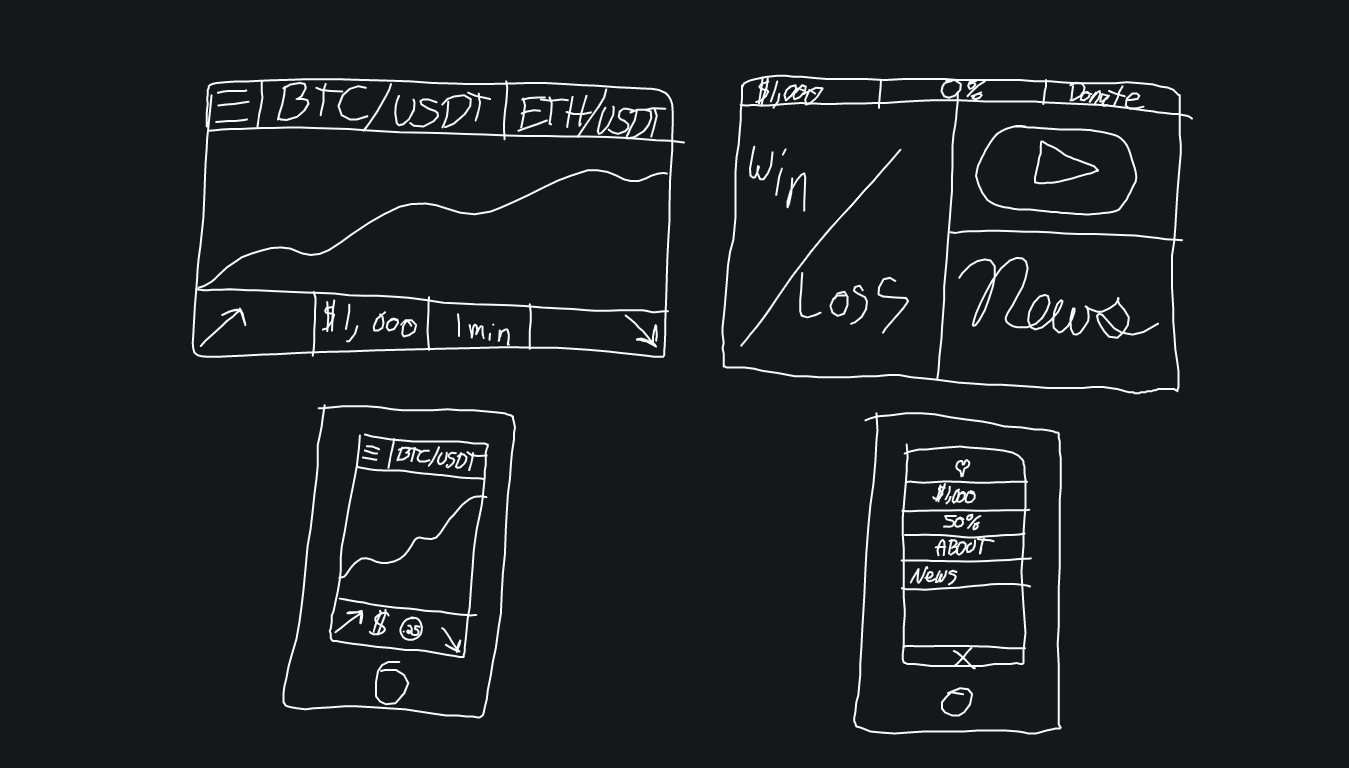 BTC/USDT ETH/USDT
$1,000 1min
$1,000 0% Donate
Win
Loss
News
BTC/USDT
$ .25
$1,000
50%
ABOUT
News
X